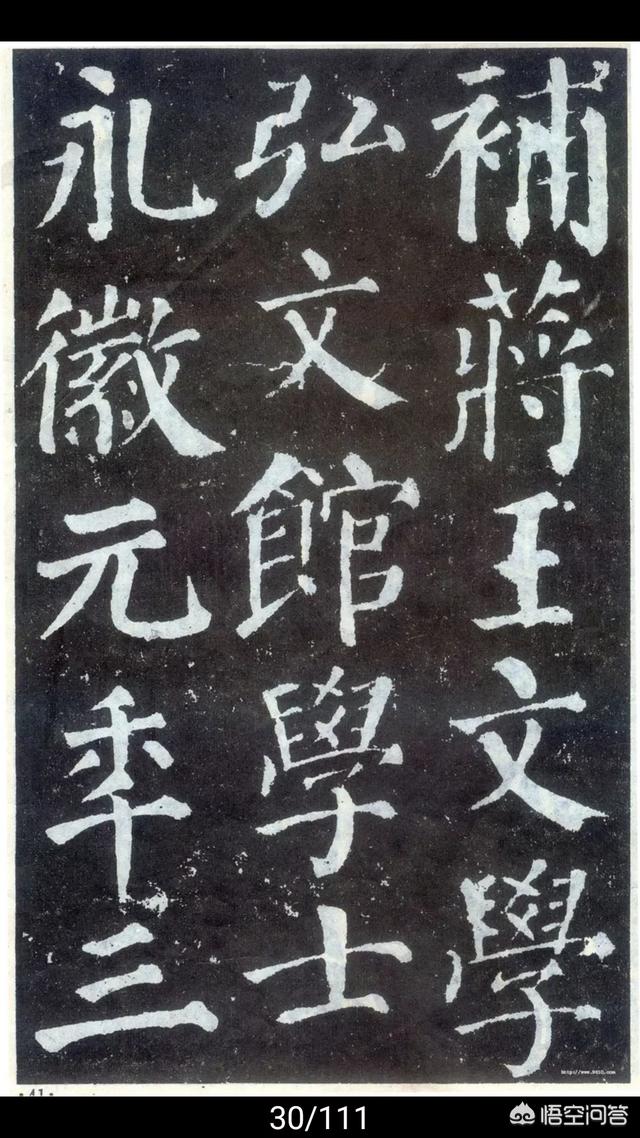 補蔣王文學
弘文館學士
永徽元年三
http://www.9610.com
·41·
30/111
悟空问答